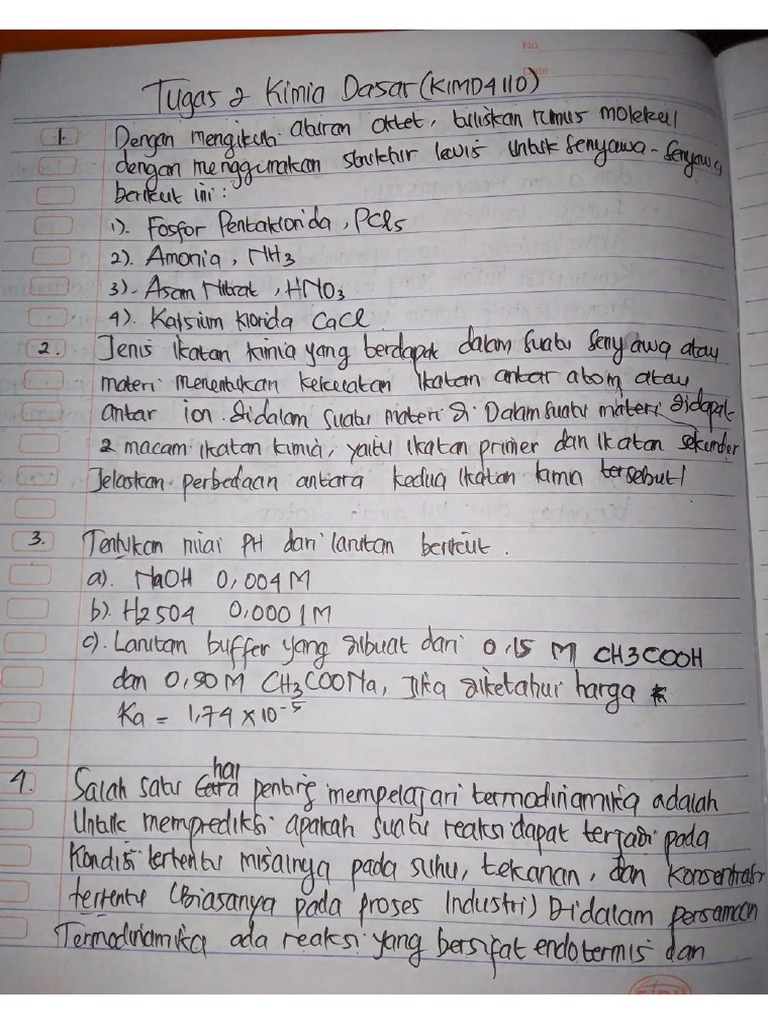 No.
Date
Tugas 2 Kimia Dasar (KIMD4110)
1. Dengan mengikuti aturan Oktet, tuliskan rumus molekul
dengan menggunakan struktur lewis untuk senyawa-senyawa
berikut ini:
1). Fosfor Pentaklorida, PCl5
2). Amonia, NH3
3). Asam Nitrat, HNO3
4). Kalsium klorida CaCl.
2. Jenis ikatan kimia yang terdapat dalam suatu senyawa atau
materi menentukan kekuatan ikatan antar atom atau
antar ion didalam suatu materi di Dalam suatu materi didapat
2 macam ikatan kimia, yaitu ikatan primer dan ikatan sekunder
Jelaskan perbedaan antara kedua ikatan kimia tersebut!
3. Tentukan nilai PH dari larutan berikut.
a). NaOH 0,004 M
b). H2SO4 0,0001 M
c). Larutan buffer yang dibuat dari 0,15 M CH3COOH
dan 0,90 M CH3COONa, Jika diketahui harga
Ka = 1,74 × 10-5
4. Salah satu hal penting mempelajari termodinamika adalah
Untuk memprediksi apakah suatu reaksi dapat terjadi pada
Kondisi tertentu misalnya pada suhu, tekanan, dan konsentrasi
tertentu (Biasanya pada proses Industri) Didalam persamaan
Termodinamika ada reaksi yang bersifat endotermis dan